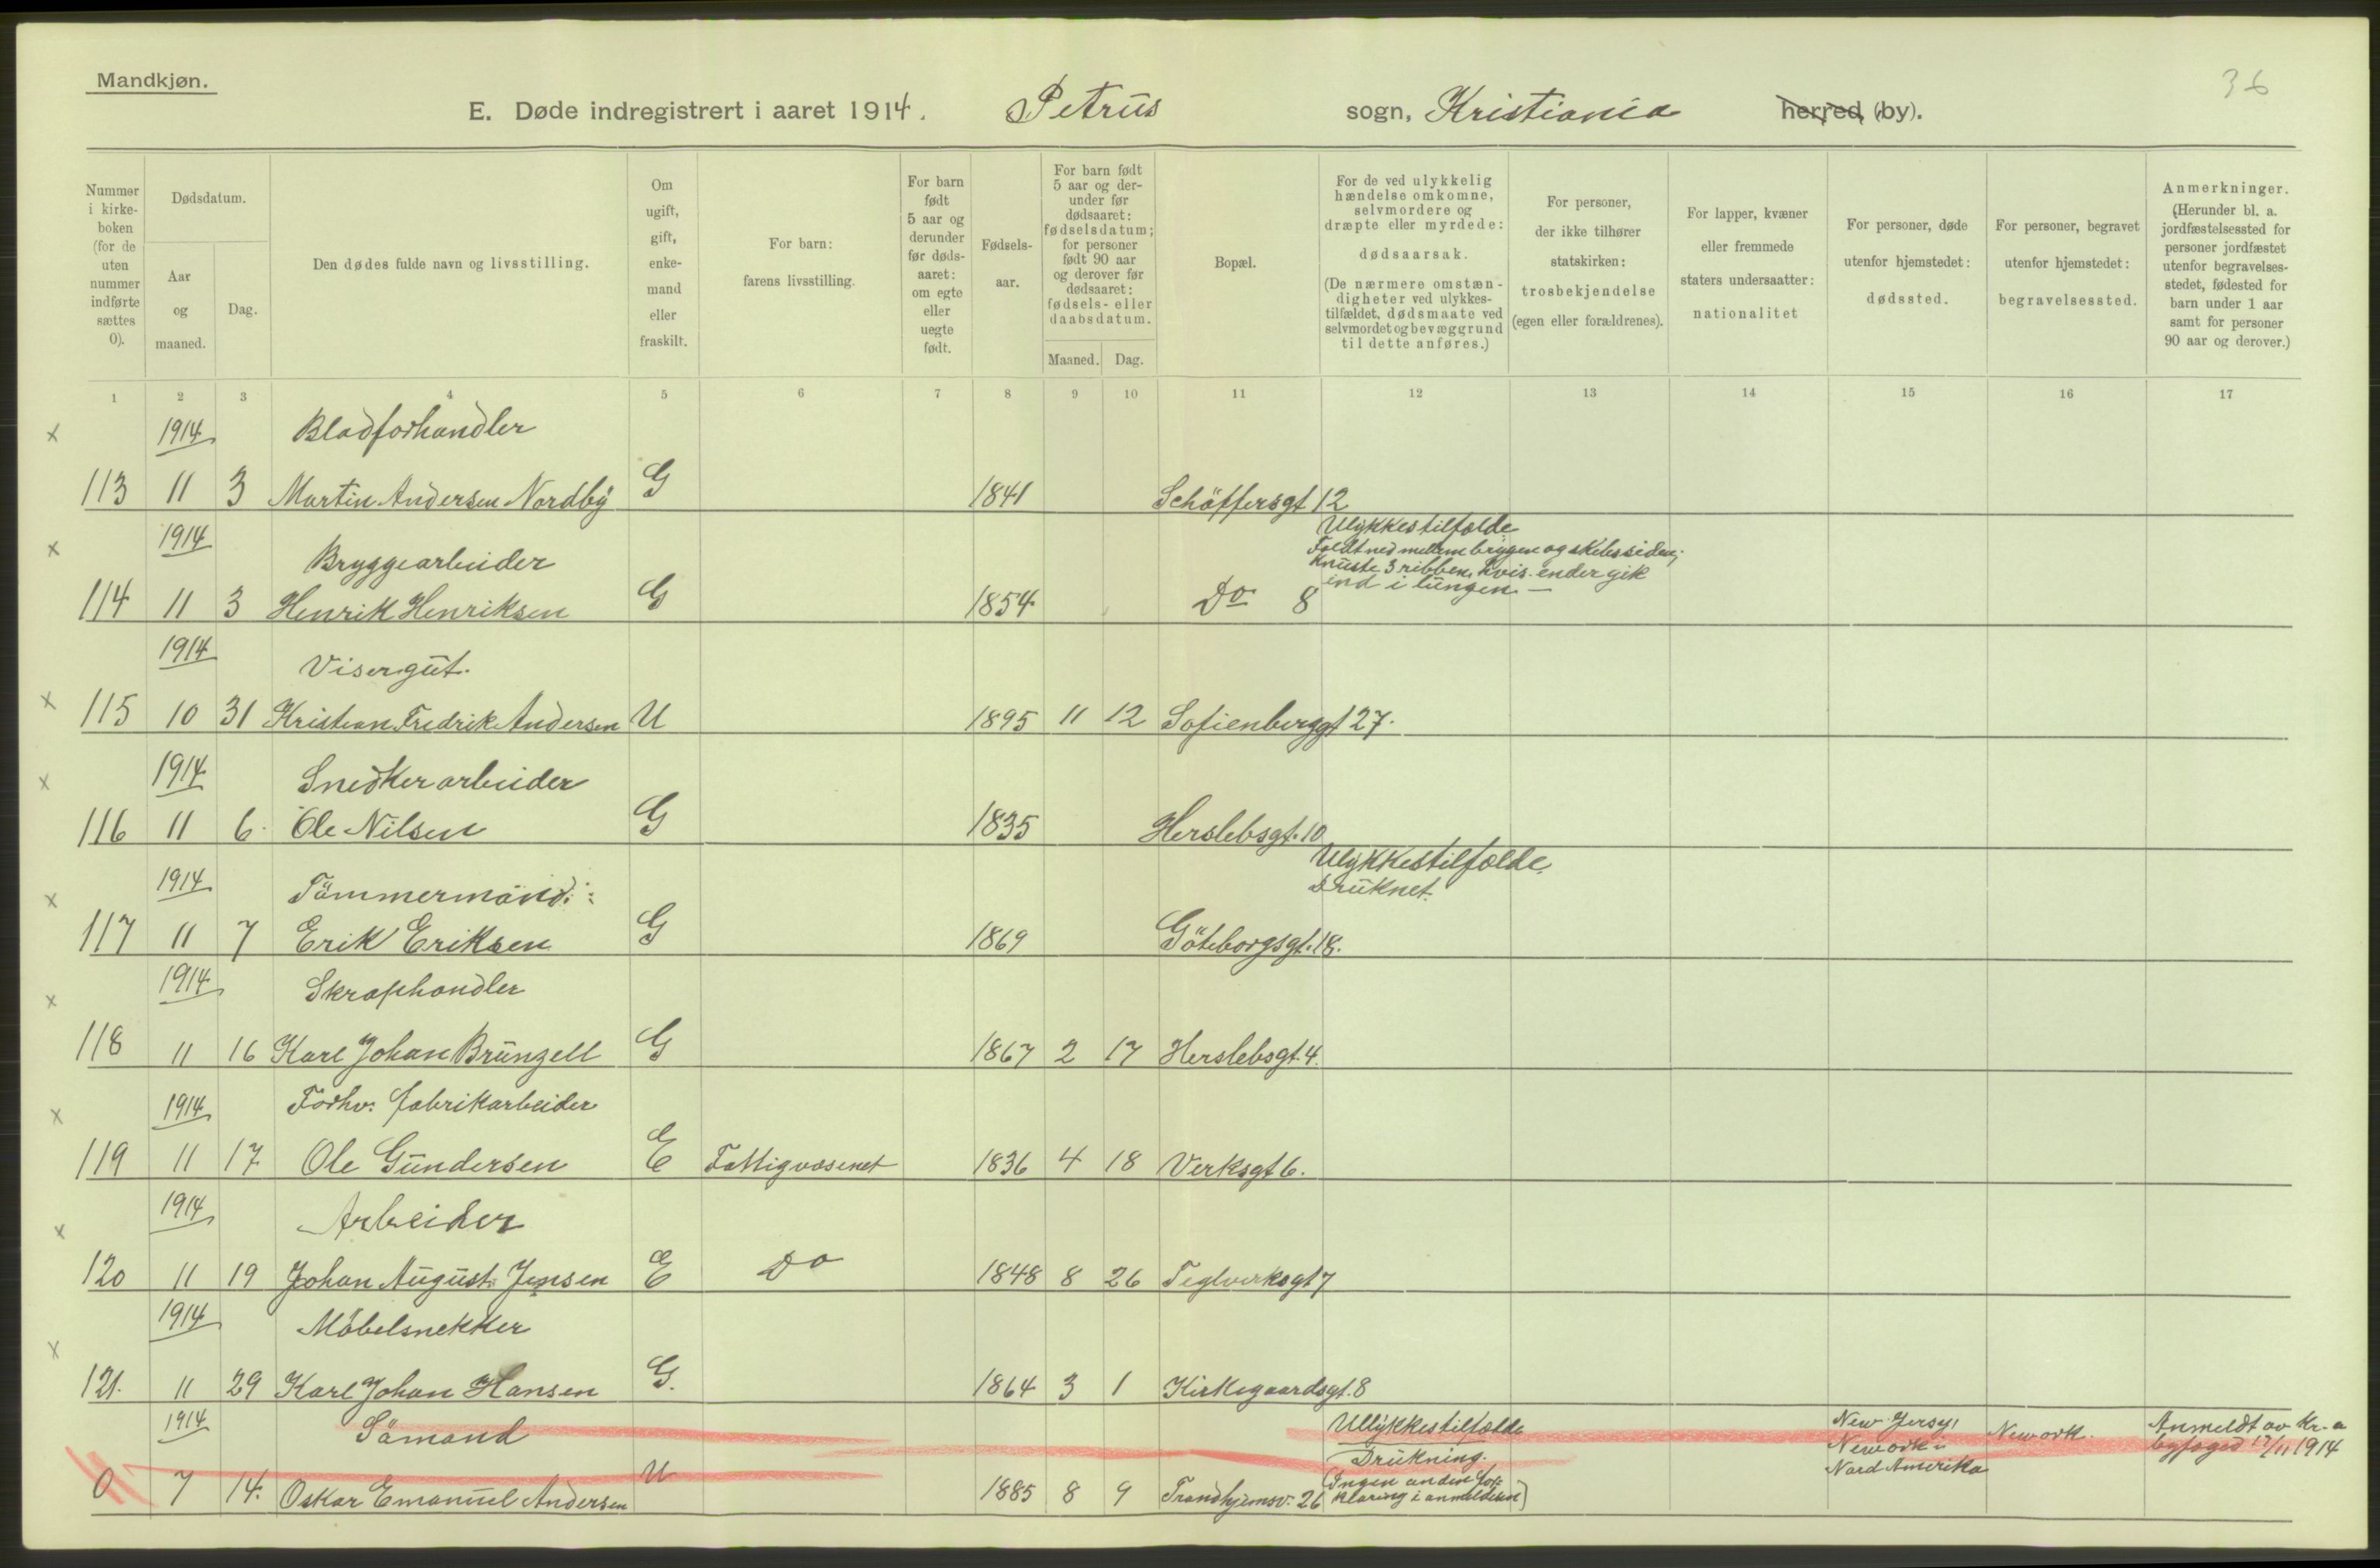 Mandkjøn.
36
E. Døde indregistrert i aaret 1914. Petrus sogn, Kristiania herred (by).
Nummer i kirke- boken (for de uten nummer indførte sættes 0).
Dødsdatum.
Aar og maaned.
Dag.
Den dødes fulde navn og livsstilling.
Om ugift, gift, enke- mand eller fraskilt.
For barn: farens livsstilling.
For barn født 5 aar og derunder før døds- aaret: om egte eller uegte født.
Fødsels- aar.
For barn født 5 aar og der- under før dødsaaret: fødselsdatum; for personer født 90 aar og derover før dødsaaret: fødsels- eller daabsdatum.
Maaned. Dag.
Bopæl.
For de ved ulykkelig hændelse omkomne, selvmordere og dræpte eller myrdede: dødsaarsak. (De nærmere omstæn- digheter ved ulykkes- tilfældet, dødsmaate ved selvmordet og bevæggrund til dette anføres.)
For personer, der ikke tilhører statskirken: trosbekjendelse (egen eller forældrenes).
For lapper, kvæner eller fremmede staters undersaatter: nationalitet
For personer, døde utenfor hjemstedet: dødssted.
For personer, begravet utenfor hjemstedet: begravelsessted.
Anmerkninger. (Herunder bl. a. jordfæstelsessted for personer jordfæstet utenfor begravelses- stedet, fødested for barn under 1 aar samt for personer 90 aar og derover.)
1 2 3 4 5 6 7 8 9 10 11 12 13 14 15 16 17
x 1914 Bladforhandler
113 11 3 Martin Andersen Nordby G 1841 Schäffersgt 12
x 1914 Bryggearbeider Ulykkestilfælde
Faldt ned mellem bryggen og skibssiden;
knuste 3 ribben, hvis ender gik
ind i lungen. —
114 11 3 Henrik Henriksen G 1854 Do 8
1914 Visergut.
x 115 10 31 Kristian Fredrik Andersen U 1895 11 12 Sofienberggt 27.
x 1914 Snedkerarbeider
116 11 6. Ole Nilsen G 1835 Herslebsgt. 10
x 1914 Tömmermand: Ulykkestilfælde.
Druknet.
117 11 7 Erik Eriksen G 1869 Göteborgsgt. 18.
x 1914 Skraphandler
118 11 16 Karl Johan Brunzell G 1867 2 17 Herslebsgt. 4.
x 1914 Forhv. fabrikarbeider
119 11 17 Ole Gundersen E Fattigvæsenet 1836 4 18 Verksgt 6.
x 1914 Arbeider
120 11 19 Johan August Jensen E Do 1848 8 26 Teglverksgt 7
1914 Möbelsnekker
x 121. 11 29 Karl Johan Hansen G. 1864 3 1 Kirkegaardsgt. 8
1914 Sömand Ullykkestilfælde New Jersy, Newark. Anmeldt av Kr.a
Drukning. Newark i byfoged 17/11 1914
(Ingen anden for- Nord Amerika
klaring i anmeldelsen)
0 7 14. Oskar Emanuel Andersen U 1885 8 9 Trondhjemsv. 26